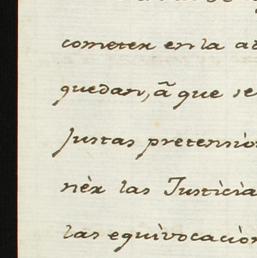 cometer en la
quedan, ã que se
Justas pretensio
nèx las Justicia
las equivocacio